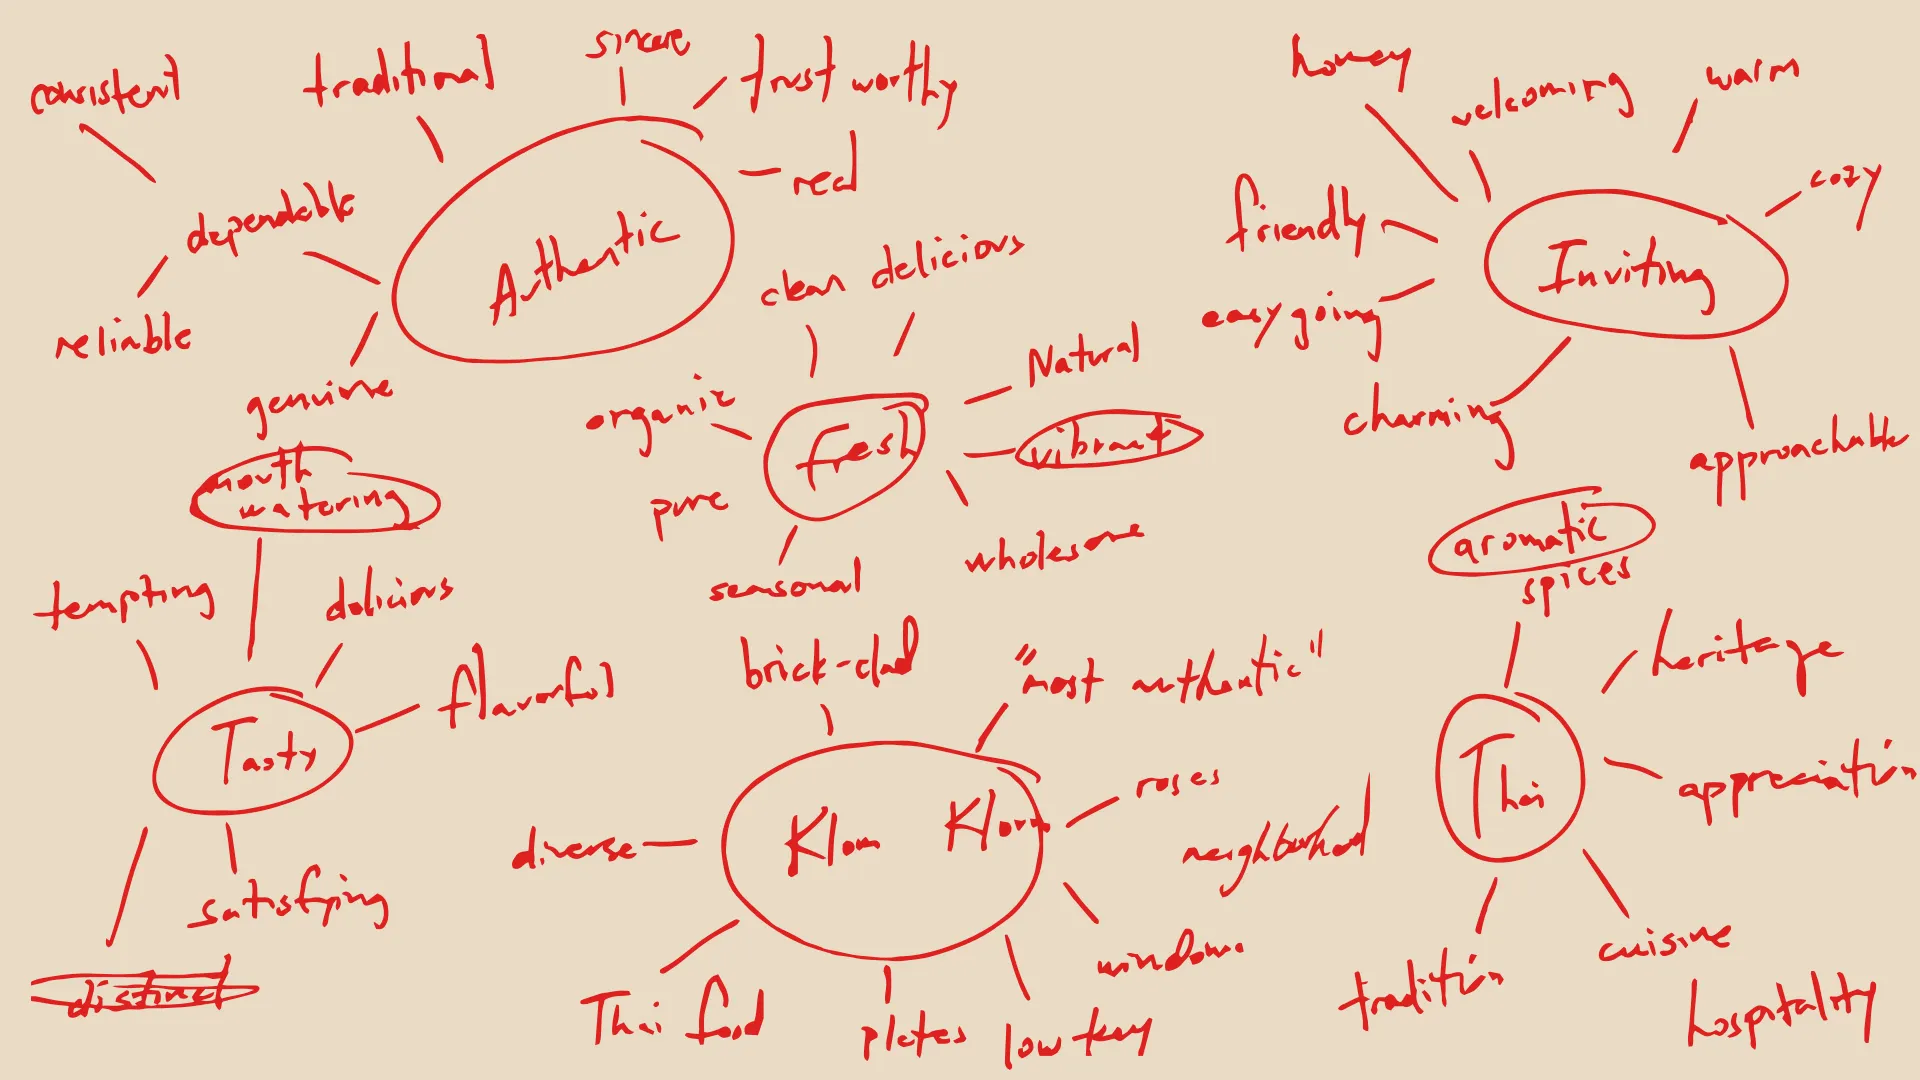 consistent
traditional
sincere
trust worthy
real
dependable
reliable
genuine
Authentic
homey
welcoming
warm
cozy
friendly
easygoing
charming
approachable
Inviting
clean
delicious
Natural
vibrant
wholesome
seasonal
pure
organic
fresh
mouth
watering
tempting
delicious
flavorful
satisfying
distinct
Tasty
brick-clad
"most authentic"
roses
neighborhood
windows
low key
plates
Thai food
diverse
Klom Klorm
aromatic
spices
heritage
appreciation
cuisine
hospitality
tradition
Thai